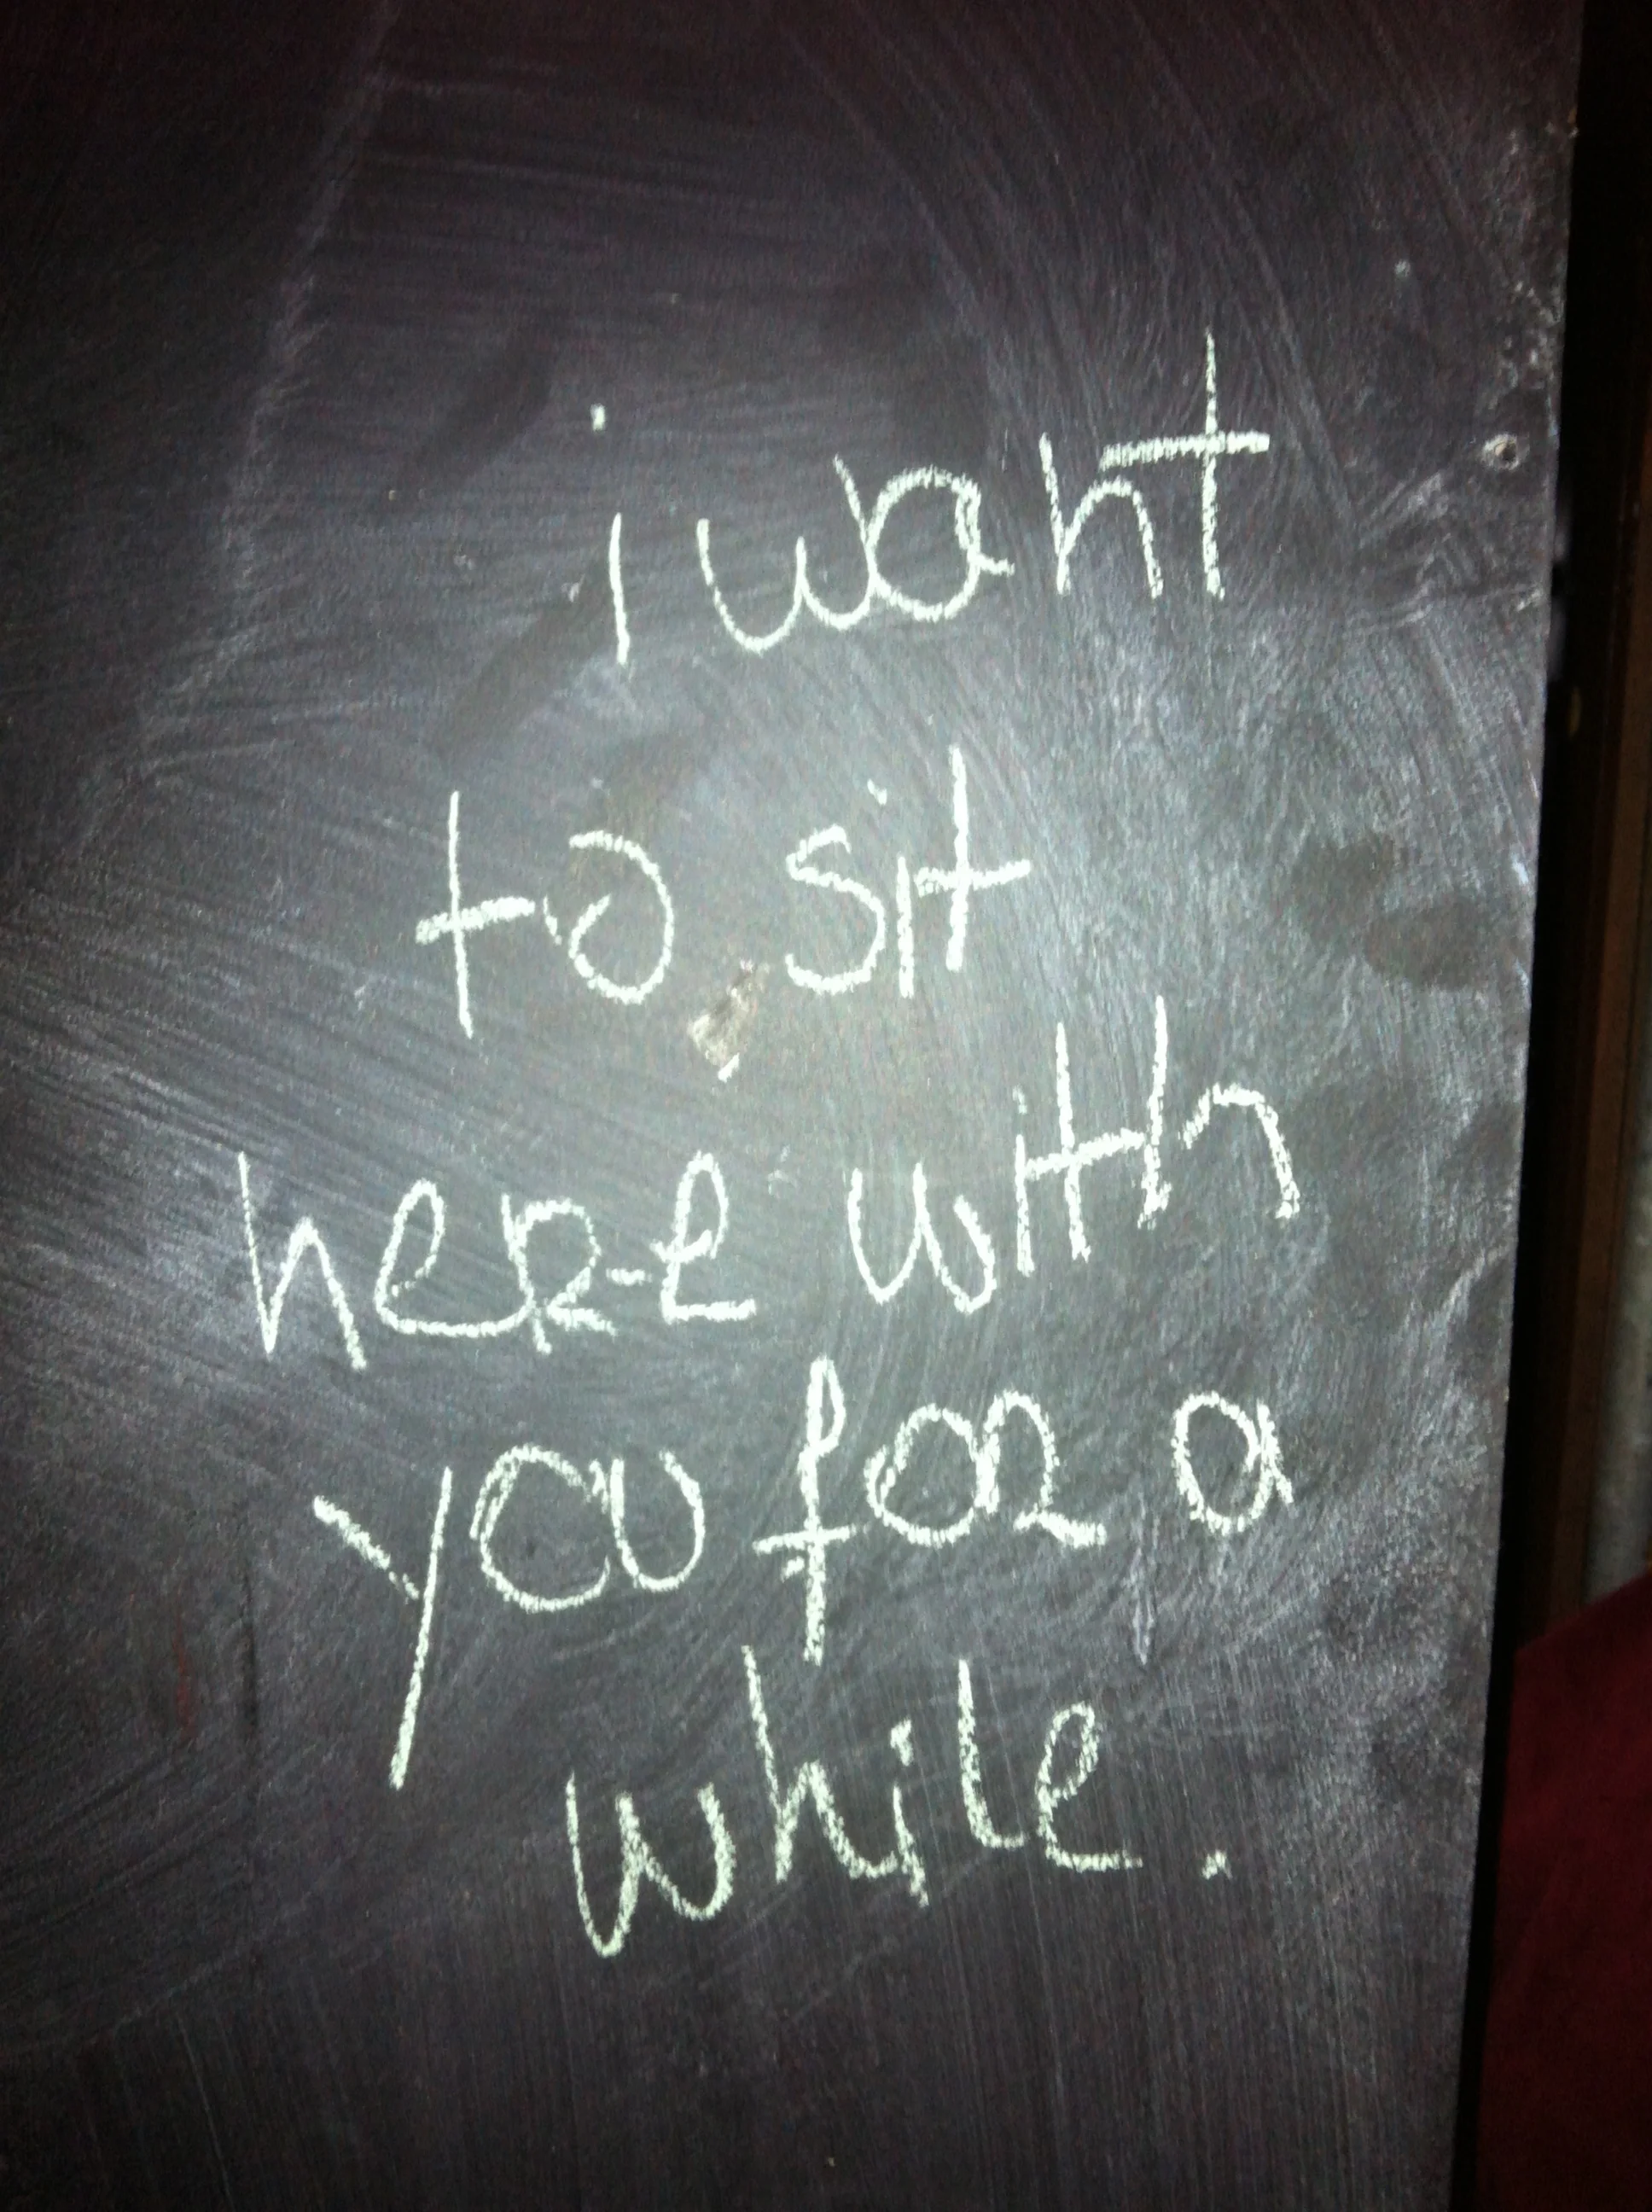 i want
to sit
here with
you for a
while.